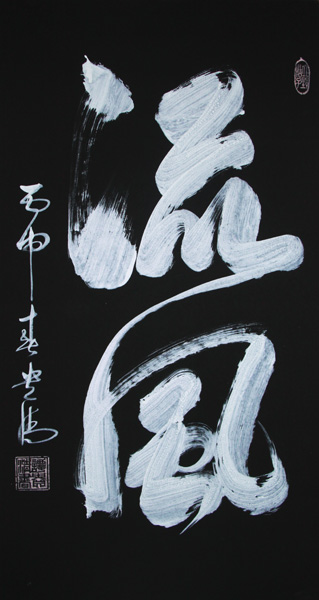 流風
丙申春